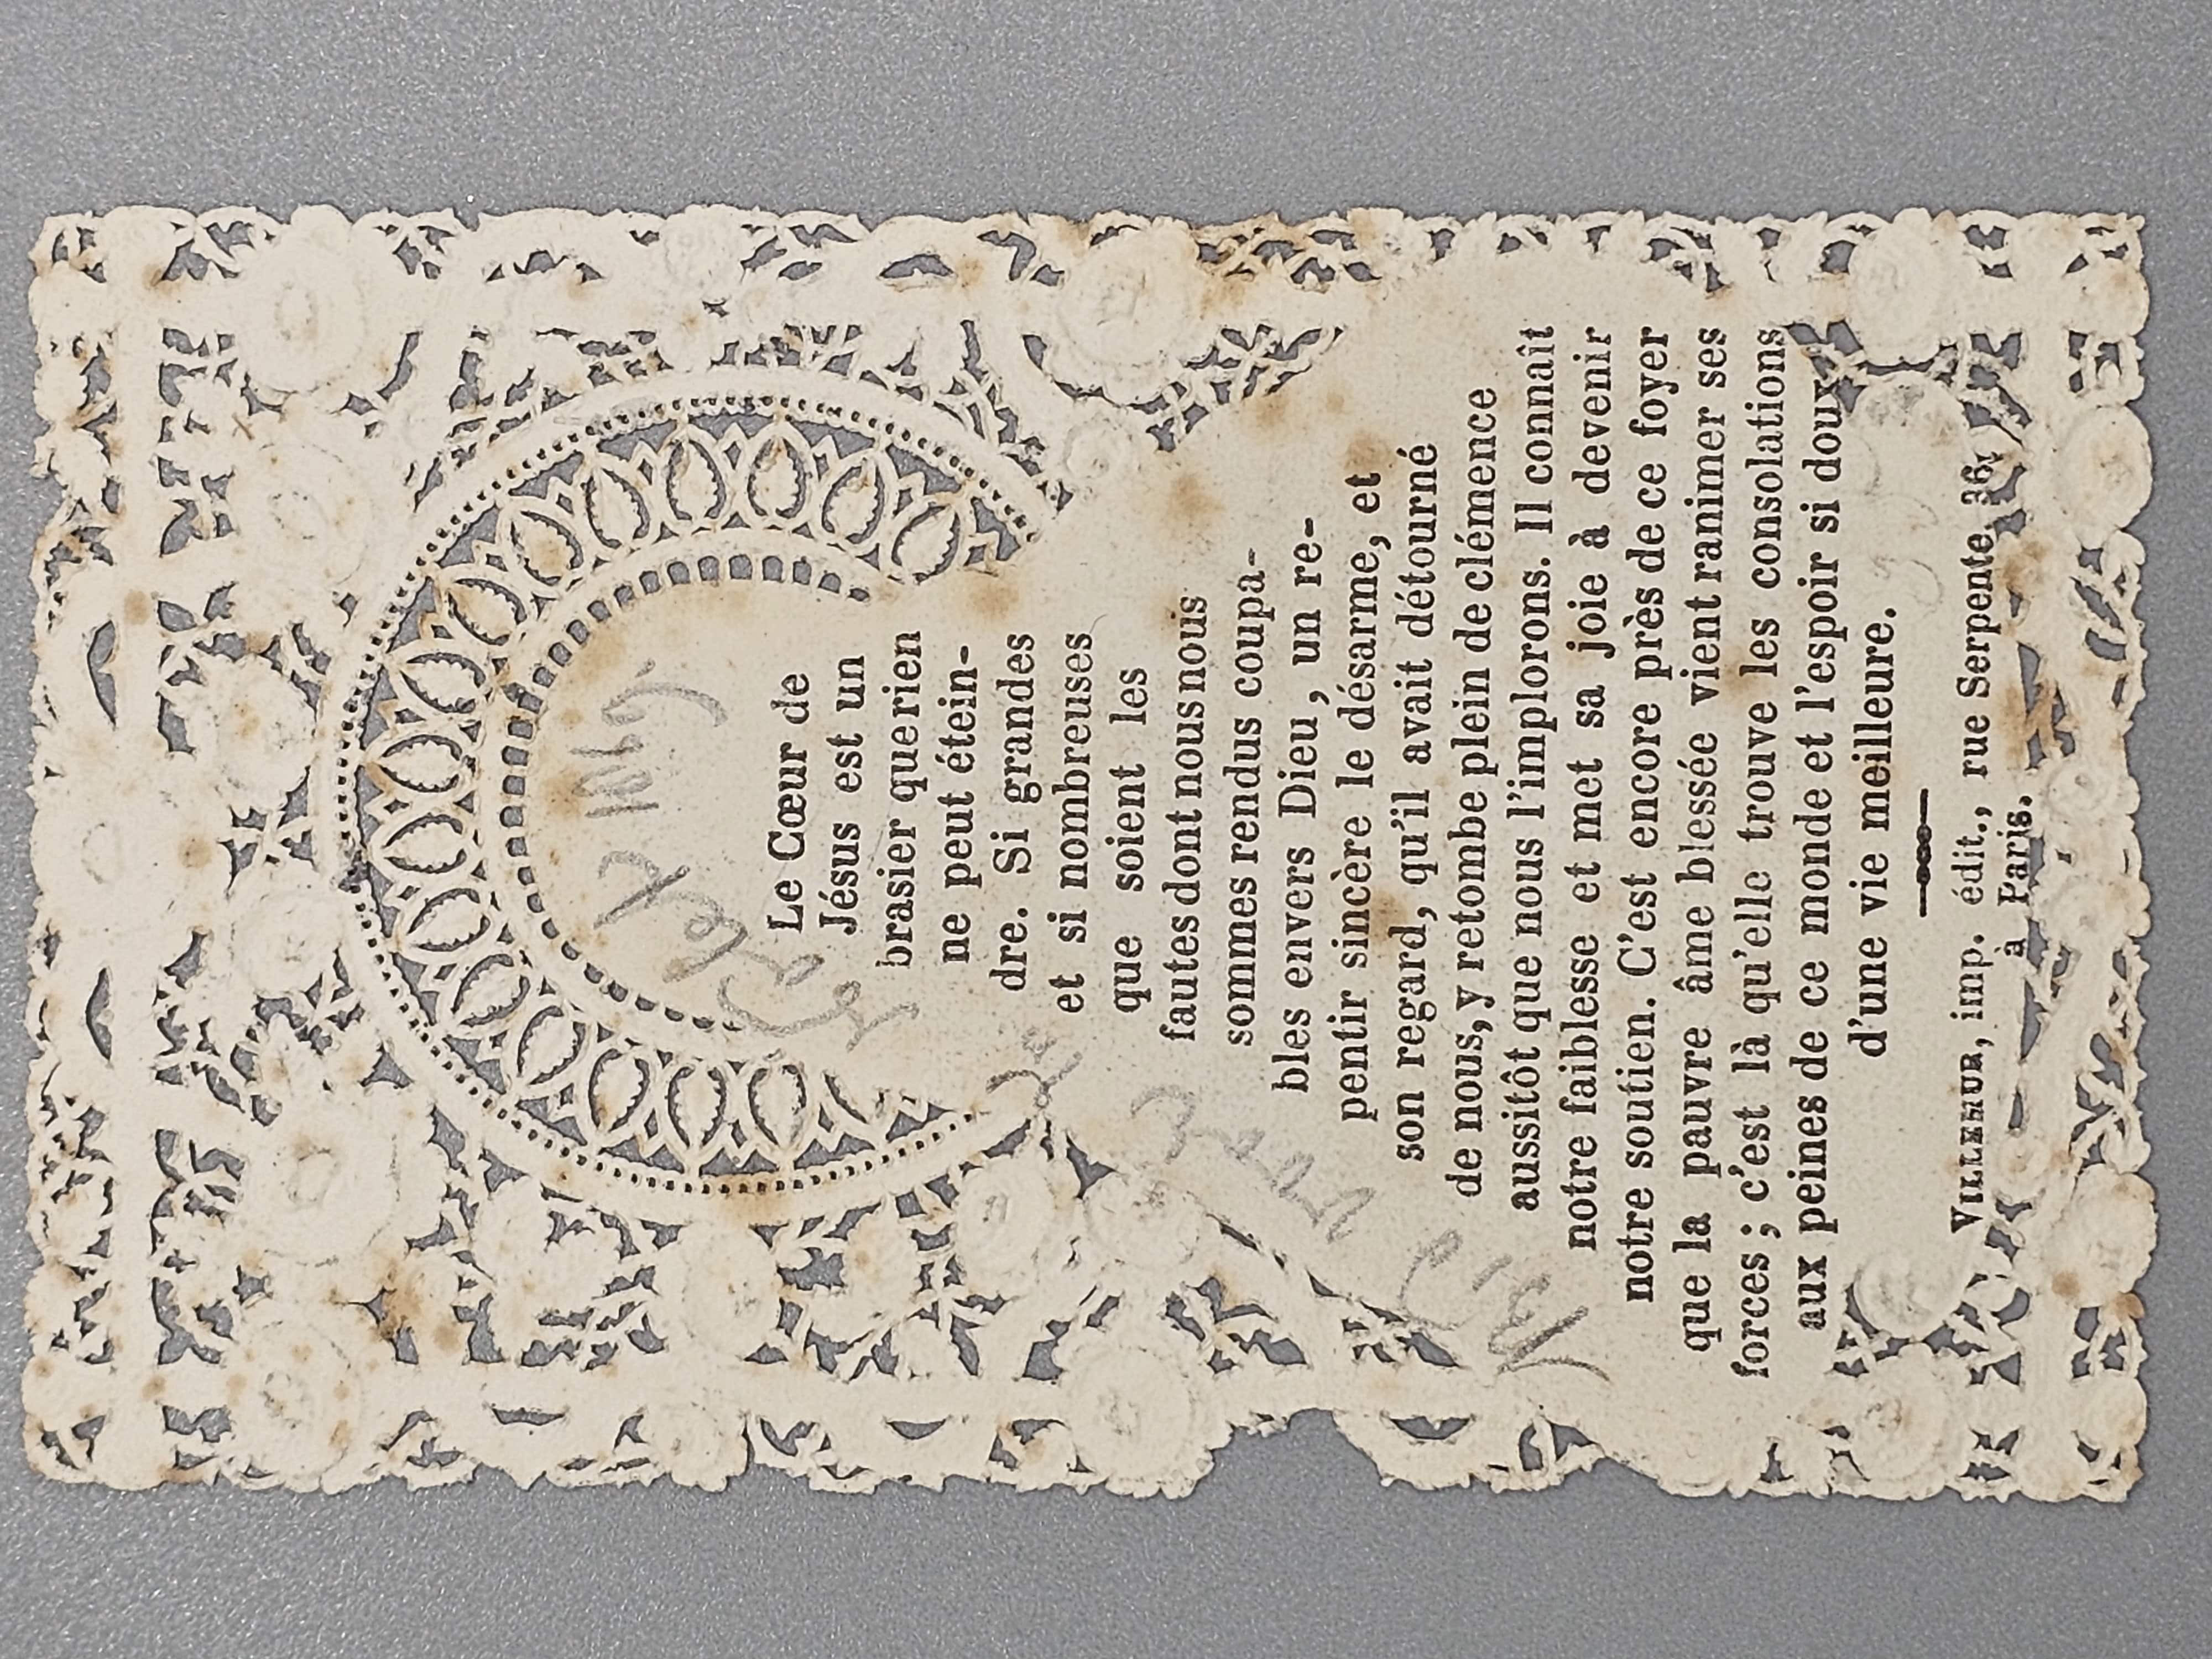 Le Cœur de
Jésus est un
brasier que rien
ne peut étein-
dre. Si grandes
et si nombreuses
que soient les
fautes dont nous nous
sommes rendus coupa-
bles envers Dieu, un re-
pentir sincère le désarme, et
son regard, qu'il avait détourné
de nous, y retombe plein de clémence
aussitôt que nous l'implorons. Il connaît
notre faiblesse et met sa joie à devenir
notre soutien. C'est encore près de ce foyer
que la pauvre âme blessée vient ranimer ses
forces; c'est là qu'elle trouve les consolations
aux peines de ce monde et l'espoir si doux
d'une vie meilleure.
VILLEMUR, imp. édit., rue Serpente, 36,
à Paris.